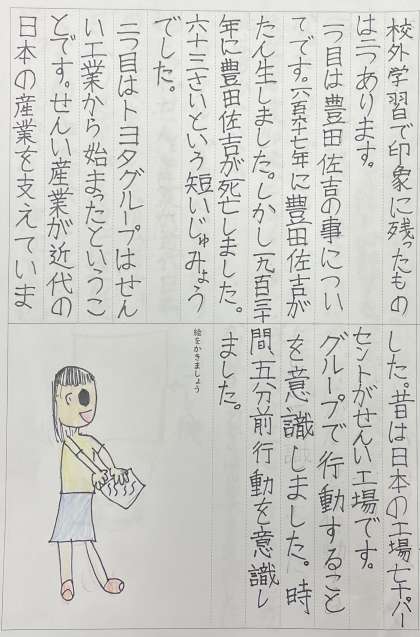 校外学習で印象に残ったもの
は二つあります。
一つ目は豊田佐吉の事につい
てです。六百六十七年に豊田佐吉が
たん生しました。しかし一九百三十
年に豊田佐吉が死亡しました。
六十三さいという短いじゅみょう
でした。
二つ目はトヨタグループはせん
い工業から始まったというこ
とです。せんい産業が近代の
日本の産業を支えていま
した。昔は日本の工場七十パー
セントがせんい工場です。
グループで行動すること
を意識しました。時
間、五分前行動を意識し
ました。
絵をかきましょう